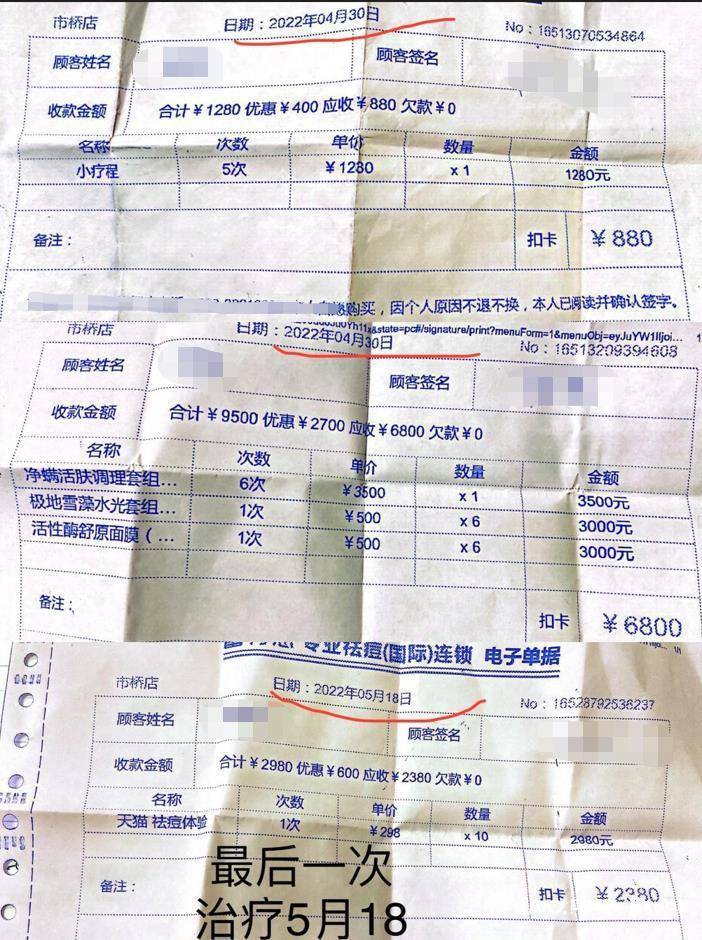 市桥店 日期：2022年04月30日 No：16513070534864
顾客姓名 顾客签名
收款金额 合计￥1280 优惠￥400 应收￥880 欠款￥0
名称 次数 单价 数量 金额
小疗程 5次 ￥1280 x 1 1280元
备注： 扣卡 ￥880
购买，因个人原因不退不换，本人已阅读并确认签字。
&state=pc#/signature/print?menuForm=1&menuObj=eyJuYW1lIjoi...
市桥店 日期：2022年04月30日 No：16513209394608
顾客姓名 顾客签名
收款金额 合计￥9500 优惠￥2700 应收￥6800 欠款￥0
名称 次数 单价 数量 金额
净螨活肤调理套组... 6次 ￥3500 x 1 3500元
极地雪藻水光套组... 1次 ￥500 x 6 3000元
活性酶舒原面膜（... 1次 ￥500 x 6 3000元
备注： 扣卡 ￥6800
专业祛痘(国际)连锁 电子单据
市桥店 日期：2022年05月18日 No：16528792536237
顾客姓名 顾客签名
收款金额 合计￥2980 优惠￥600 应收￥2380 欠款￥0
名称 次数 单价 数量 金额
天猫 祛痘体验 1次 ￥298 x 10 2980元
备注： 扣卡 ￥2380
最后一次
治疗5月18